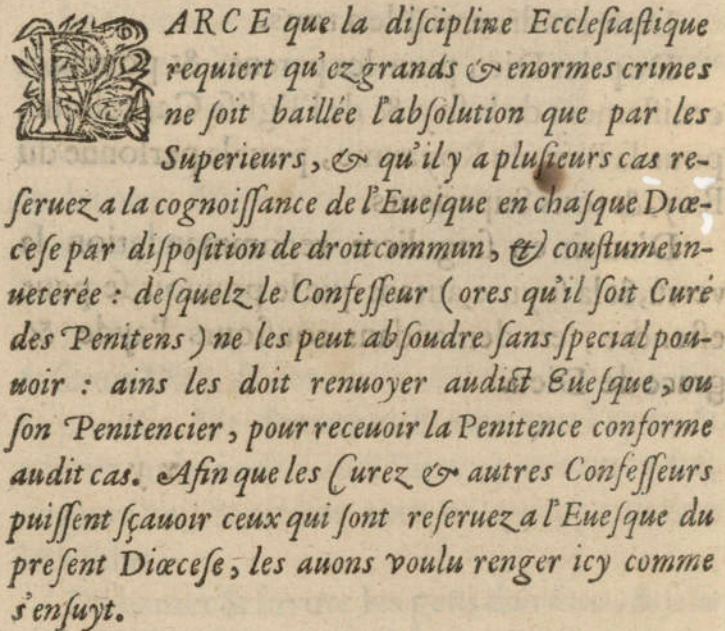 PARCE que la diſcipline Eccleſiaſtique
requiert qu'ez grands & enormes crimes
ne ſoit baillée l'abſolution que par les
Superieurs, & qu'il y a pluſieurs cas re-
ſeruez a la cognoiſſance de l'Eueſque en chaſque Diœ-
ceſe par diſpoſition de droit commun, & couſtume in-
ueterée : deſquelz le Confeſſeur (ores qu'il ſoit Curé
des Penitens) ne les peut abſoudre ſans ſpecial pou-
uoir : ains les doit renuoyer audict Eueſque, ou
ſon Penitencier, pour receuoir la Penitence conforme
audit cas. Afin que les Curez & autres Confeſſeurs
puiſſent ſçauoir ceux qui ſont reſeruez a l'Eueſque du
preſent Diœceſe, les auons voulu renger icy comme
s'enſuyt.